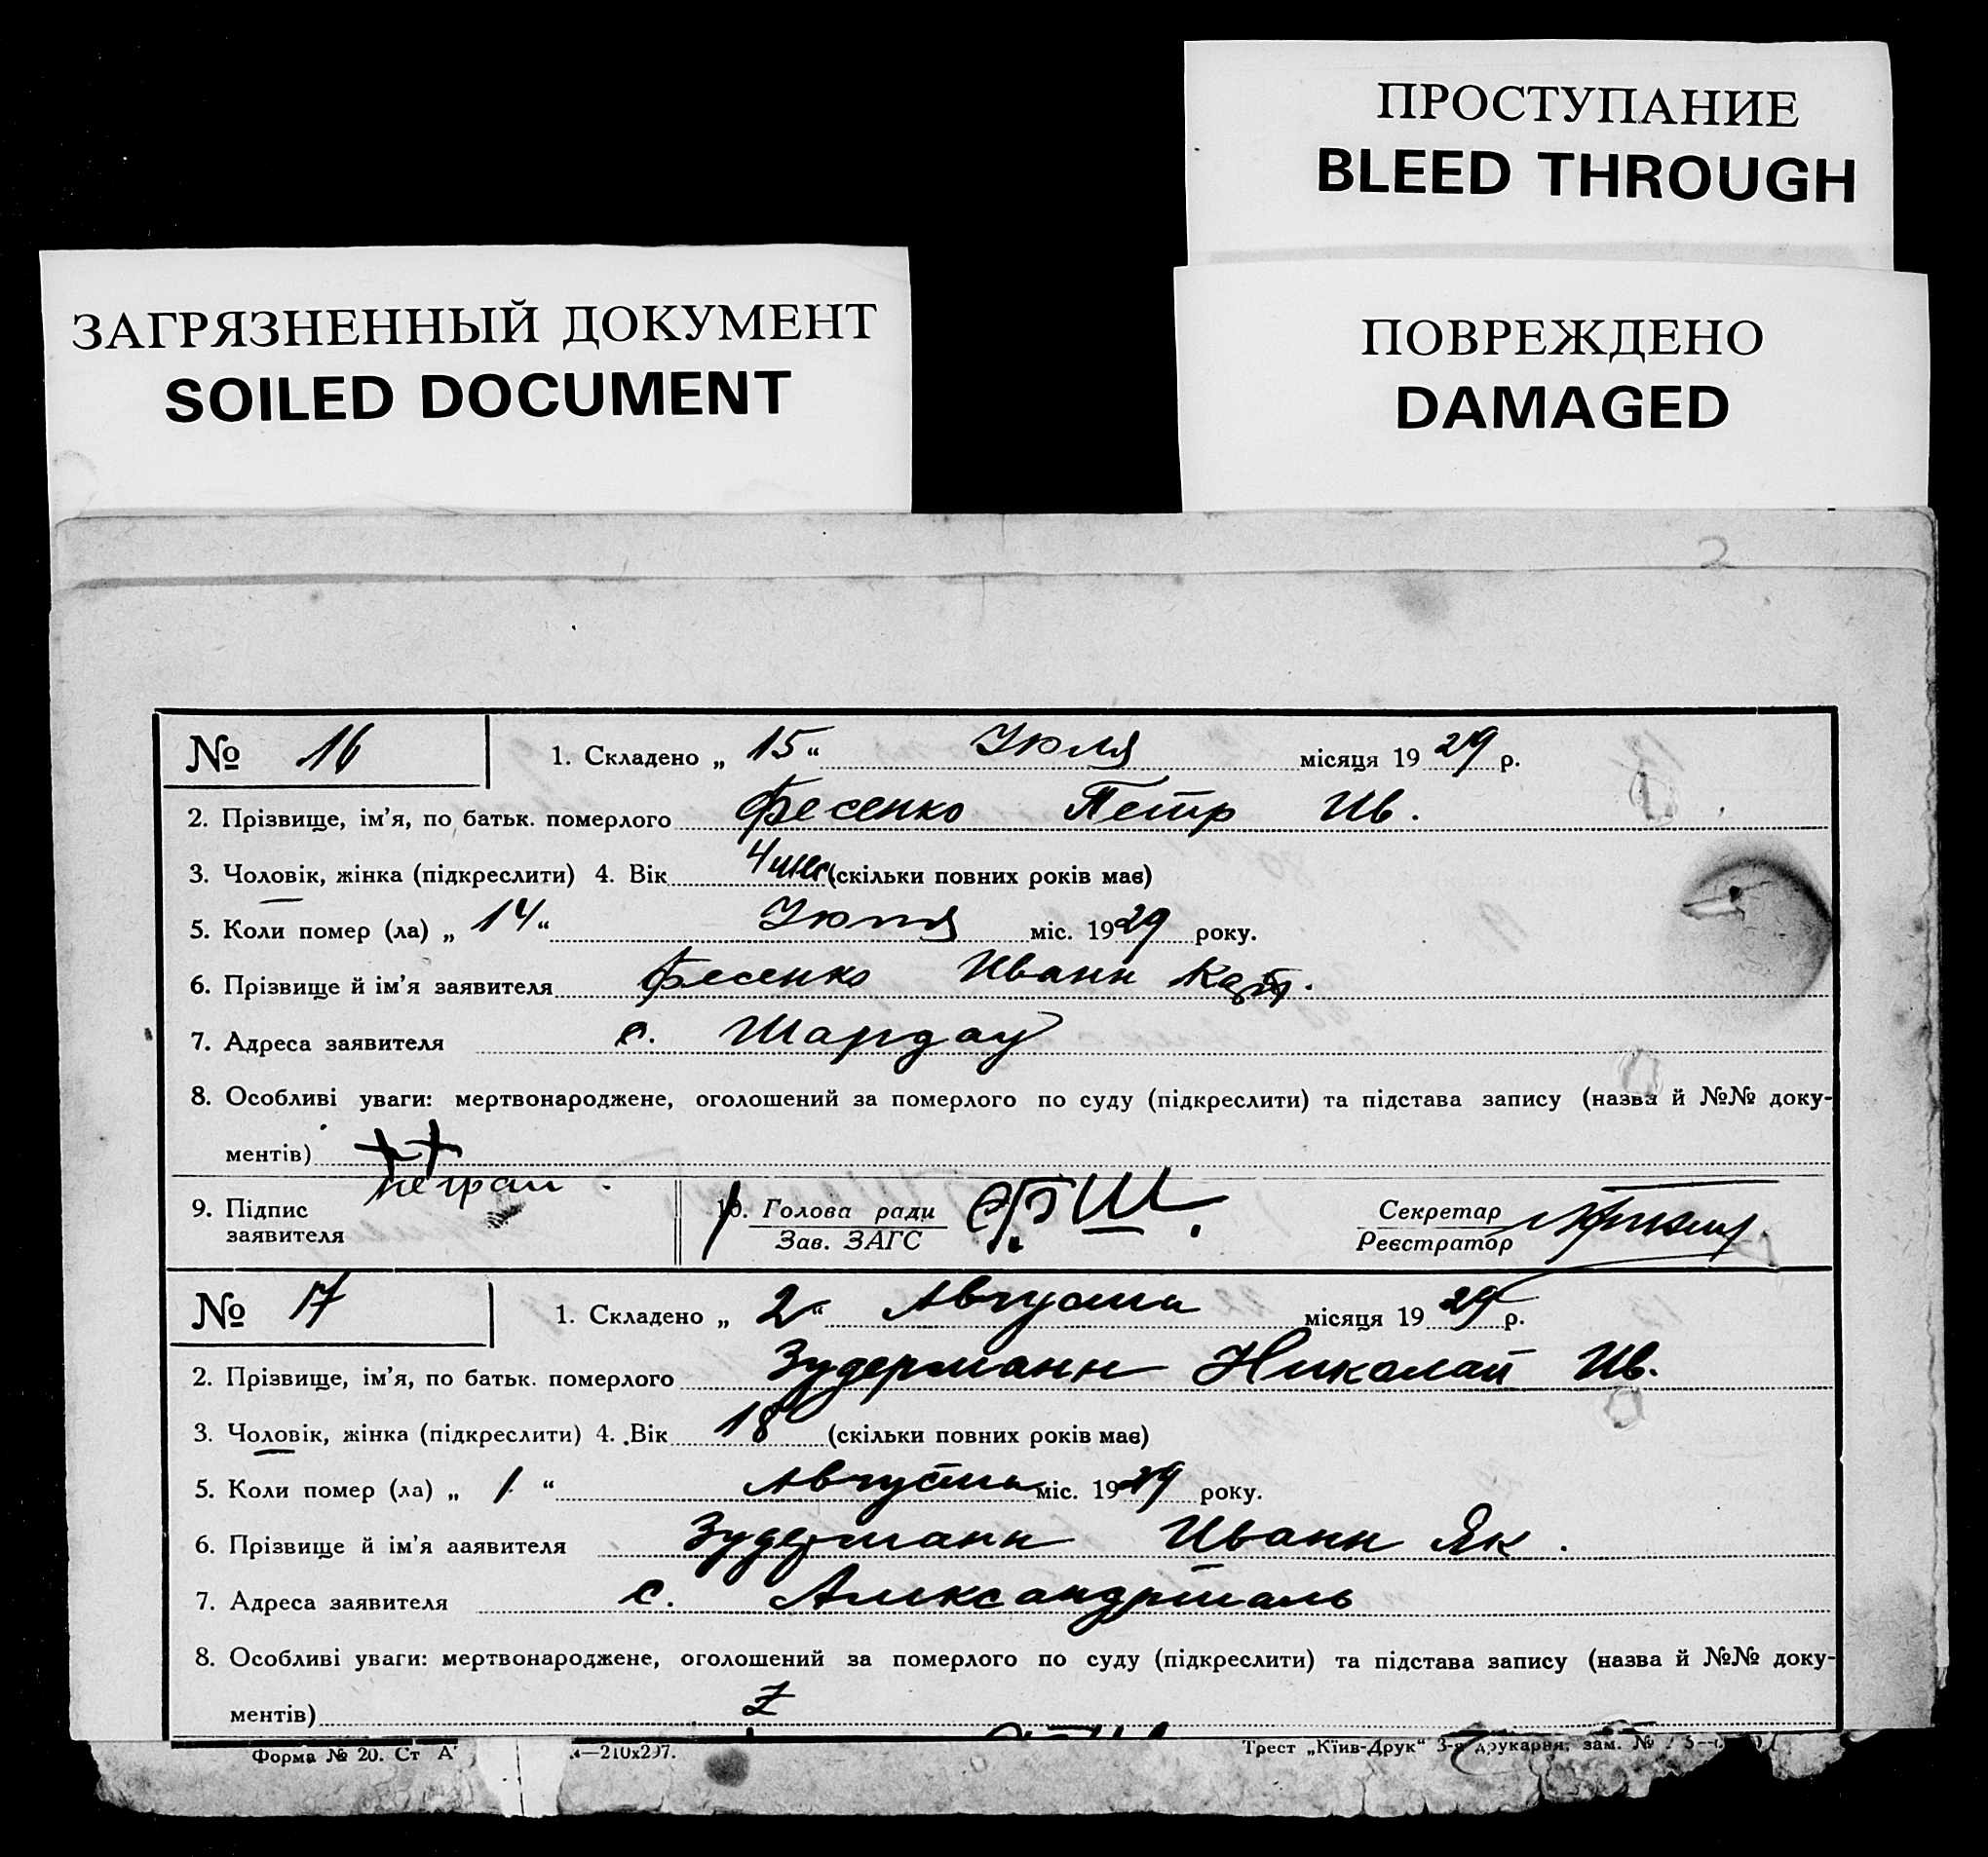 ПРОСТУПАНИЕ
BLEED THROUGH
ЗАГРЯЗНЕННЫЙ ДОКУМЕНТ
SOILED DOCUMENT
ПОВРЕЖДЕНО
DAMAGED
2
№ 16 1. Складено „ 15 “ Июля місяця 19 29 р.
2. Прізвище, ім’я, по батьк. померлого Фесенко Петр Ив.
3. Чоловік, жінка (підкреслити) 4. Вік 4 мес (скільки повних років має)
5. Коли помер (ла) „ 14 “ Июля міс. 19 29 року.
6. Прізвище й ім’я заявителя Фесенко Иван
7. Адреса заявителя с. Шардау
8. Особливі уваги: мертвонароджене, оголошений за померлого по суду (підкреслити) та підстава запису (назва й №№ доку-
ментів)
9. Підпис заявителя неграм.
10. Голова ради
Зав. ЗАГС
Секретар
Реєстратор
№ 17 1. Складено „ 2 “ Августа місяця 19 29 р.
2. Прізвище, ім’я, по батьк. померлого Зудерманн Николай Ив.
3. Чоловік, жінка (підкреслити) 4. Вік 18 (скільки повних років має)
5. Коли помер (ла) „ 1 “ Августа міс. 19 29 року.
6. Прізвище й ім’я ааявителя Зудерманн Иван Як.
7. Адреса заявителя с. Александрталь
8. Особливі уваги: мертвонароджене, оголошений за померлого по суду (підкреслити) та підстава запису (назва й №№ доку-
ментів) Z
Форма № 20. Ст А —210x297.
Трест „Київ-Друк“ 3-я друкарня, зам. №